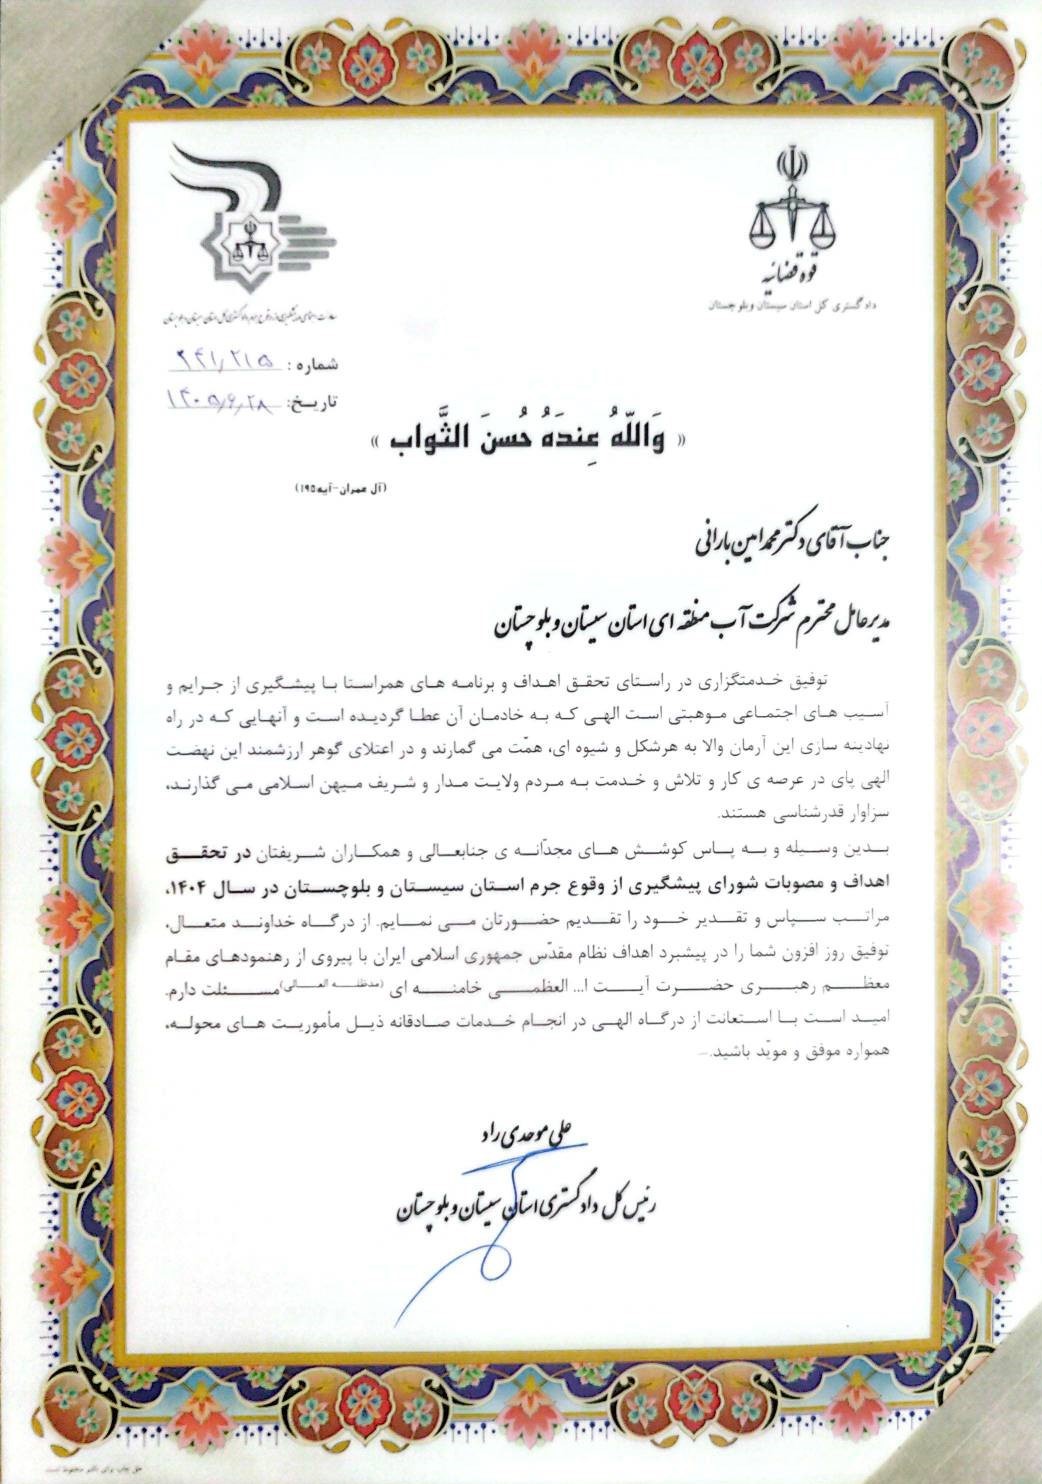 قوه قضائیه
دادگستری کل استان سیستان وبلوچستان
معاونت اجتماعی و پیشگیری از وقوع جرم دادگستری کل استان سیستان و بلوچستان
شماره :
تاریخ: ۱۴۰۵/۶/۲۸
« وَاللّهُ عِندَهُ حُسنَ الثَّواب »
(آل عمران-آیه۱۹۵)
جناب آقای دکتر محمد امین بارانی
مدیرعامل محترم شرکت آب منطقه ای استان سیستان و بلوچستان
توفیق خدمتگزاری در راستای تحقق اهداف و برنامه های همراستا با پیشگیری از جرایم و
آسیب های اجتماعی موهبتی است الهی که به خادمان آن عطا گردیده است و آنهایی که در راه
نهادینه سازی این آرمان والا به هرشکل و شیوه ای، همّت می گمارند و در اعتلای گوهر ارزشمند این نهضت
الهی پای در عرصه ی کار و تلاش و خدمت به مردم ولایت مدار و شریف میهن اسلامی می گذارند،
سزاوار قدرشناسی هستند.
بدین وسیله و به پاس کوشش های مجدّانه ی جنابعالی و همکاران شریفتان در تحقق
اهداف و مصوبات شورای پیشگیری از وقوع جرم استان سیستان و بلوچستان در سال ۱۴۰۴،
مراتب سپاس و تقدیر خود را تقدیم حضورتان می نمایم. از درگاه خداوند متعال،
توفیق روز افزون شما را در پیشبرد اهداف نظام مقدّس جمهوری اسلامی ایران با پیروی از رهنمودهای مقام
معظم رهبری حضرت آیت ا... العظمی خامنه ای (مدظله العالی) مسئلت دارم.
امید است با استعانت از درگاه الهی در انجام خدمات صادقانه ذیل مأموریت های محوله،
همواره موفق و مویّد باشید.–
علی موحدی راد
رئیس کل دادگستری استان سیستان و بلوچستان
حق چاپ برای ناشر محفوظ است